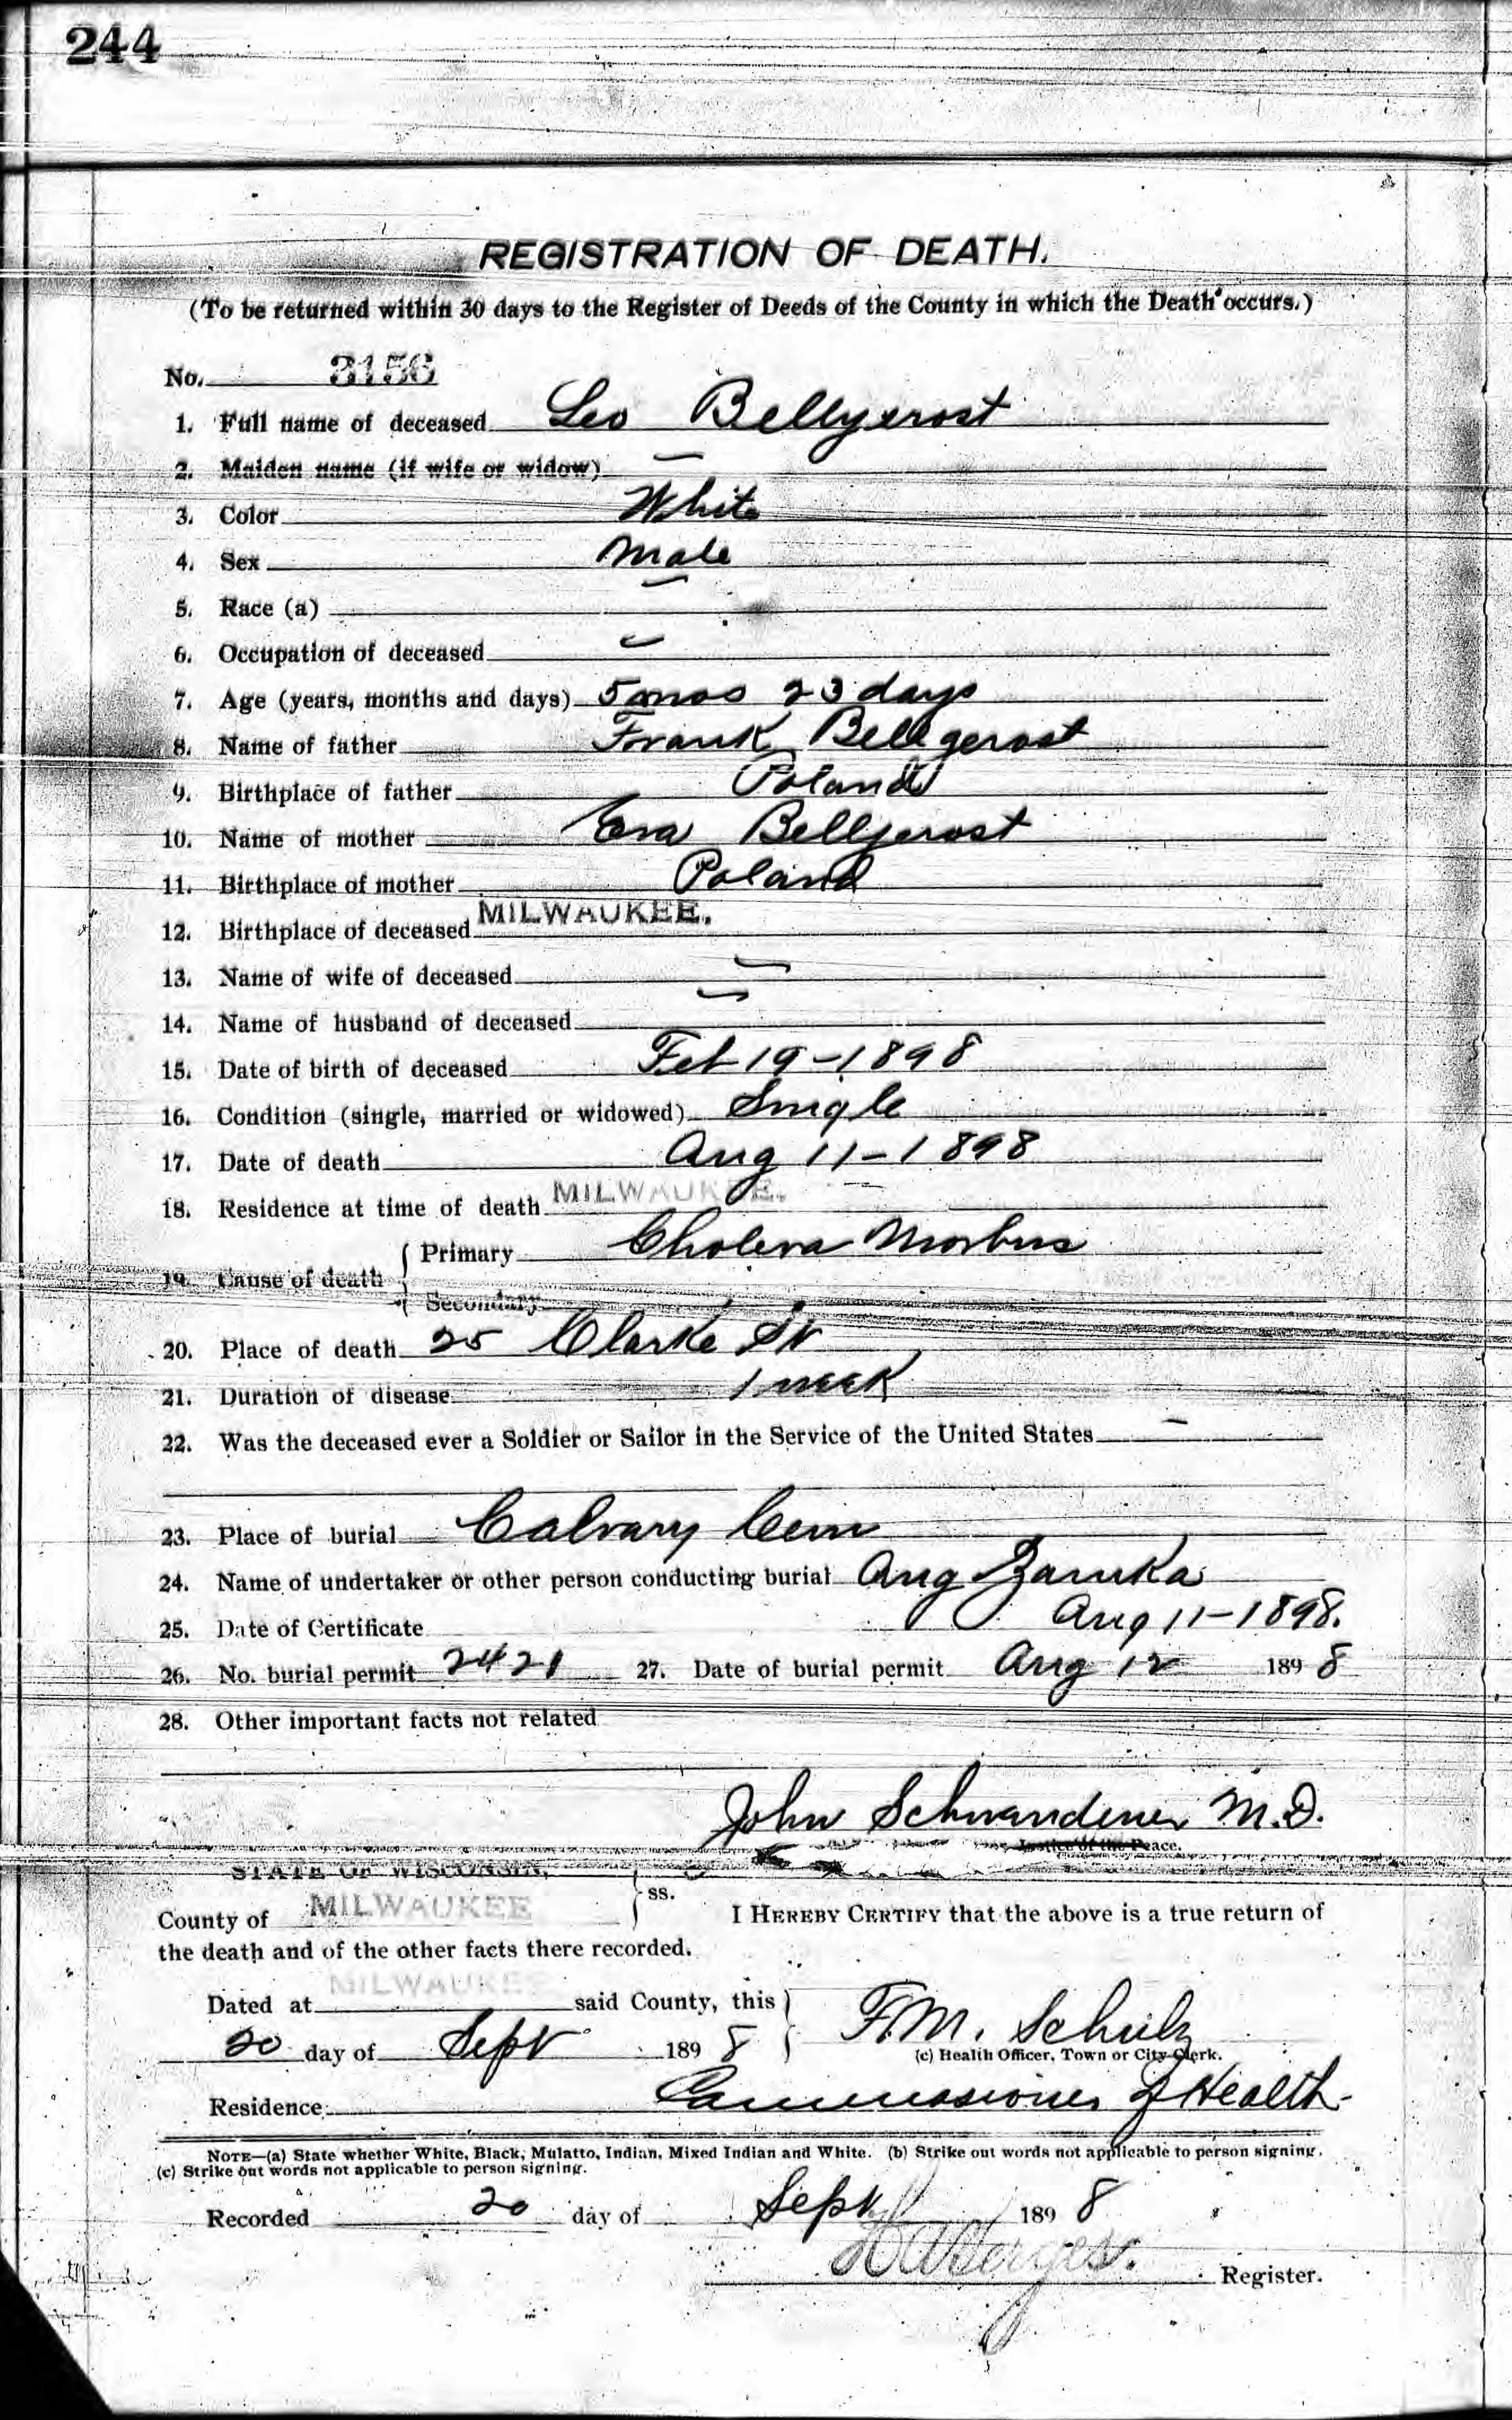 244
REGISTRATION OF DEATH.
(To be returned within 30 days to the Register of Deeds of the County in which the Death occurs.)
No. 3156
1. Full name of deceased Leo Bellgerost
2. Maiden name (if wife or widow) —
3. Color White
4. Sex Male
5. Race (a) —
6. Occupation of deceased —
7. Age (years, months and days) 5 mos 23 days
8. Name of father Frank Bellgerost
9. Birthplace of father Poland
10. Name of mother Eva Bellgerost
11. Birthplace of mother Poland
12. Birthplace of deceased MILWAUKEE.
13. Name of wife of deceased —
14. Name of husband of deceased —
15. Date of birth of deceased Feb 19-1898
16. Condition (single, married or widowed) Single
17. Date of death Aug 11-1898
18. Residence at time of death MILWAUKEE.
19. Cause of death { Primary Cholera Morbus
{ Secondary
20. Place of death 25 Clarke St
21. Duration of disease 1 week
22. Was the deceased ever a Soldier or Sailor in the Service of the United States —
23. Place of burial Calvary Cem
24. Name of undertaker or other person conducting burial Aug
25. Date of Certificate Aug 11-1898.
26. No. burial permit 2421 27. Date of burial permit Aug 12 1898
28. Other important facts not related
John Schwandener M.D.
Justice of the Peace.
STATE OF WISCONSIN, } ss.
County of MILWAUKEE I HEREBY CERTIFY that the above is a true return of
the death and of the other facts there recorded.
Dated at MILWAUKEE said County, this } F.M. Schulz
20 day of Sept 1898 } (c) Health Officer, Town or City Clerk.
Residence Commissioner of Health
NOTE—(a) State whether White, Black, Mulatto, Indian, Mixed Indian and White. (b) Strike out words not applicable to person signing.
(c) Strike out words not applicable to person signing.
Recorded 20 day of Sept 1898
Register.